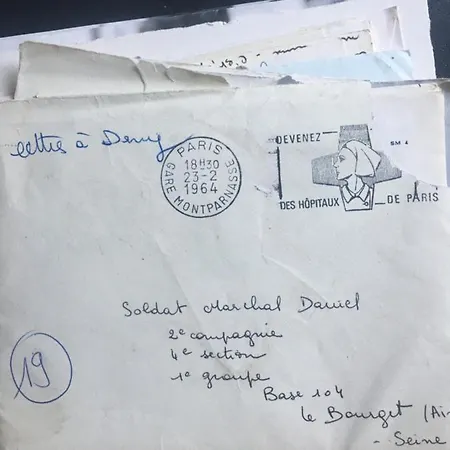 lettre à Deny
PARIS
18H30
23-2
1964
GARE MONTPARNASSE
DEVENEZ
SM
DES HÔPITAUX DE PARIS
Soldat Marchal Daniel
2e compagnie
4e section
1e groupe
Base 104
Le Bourget (Air
- Seine
19